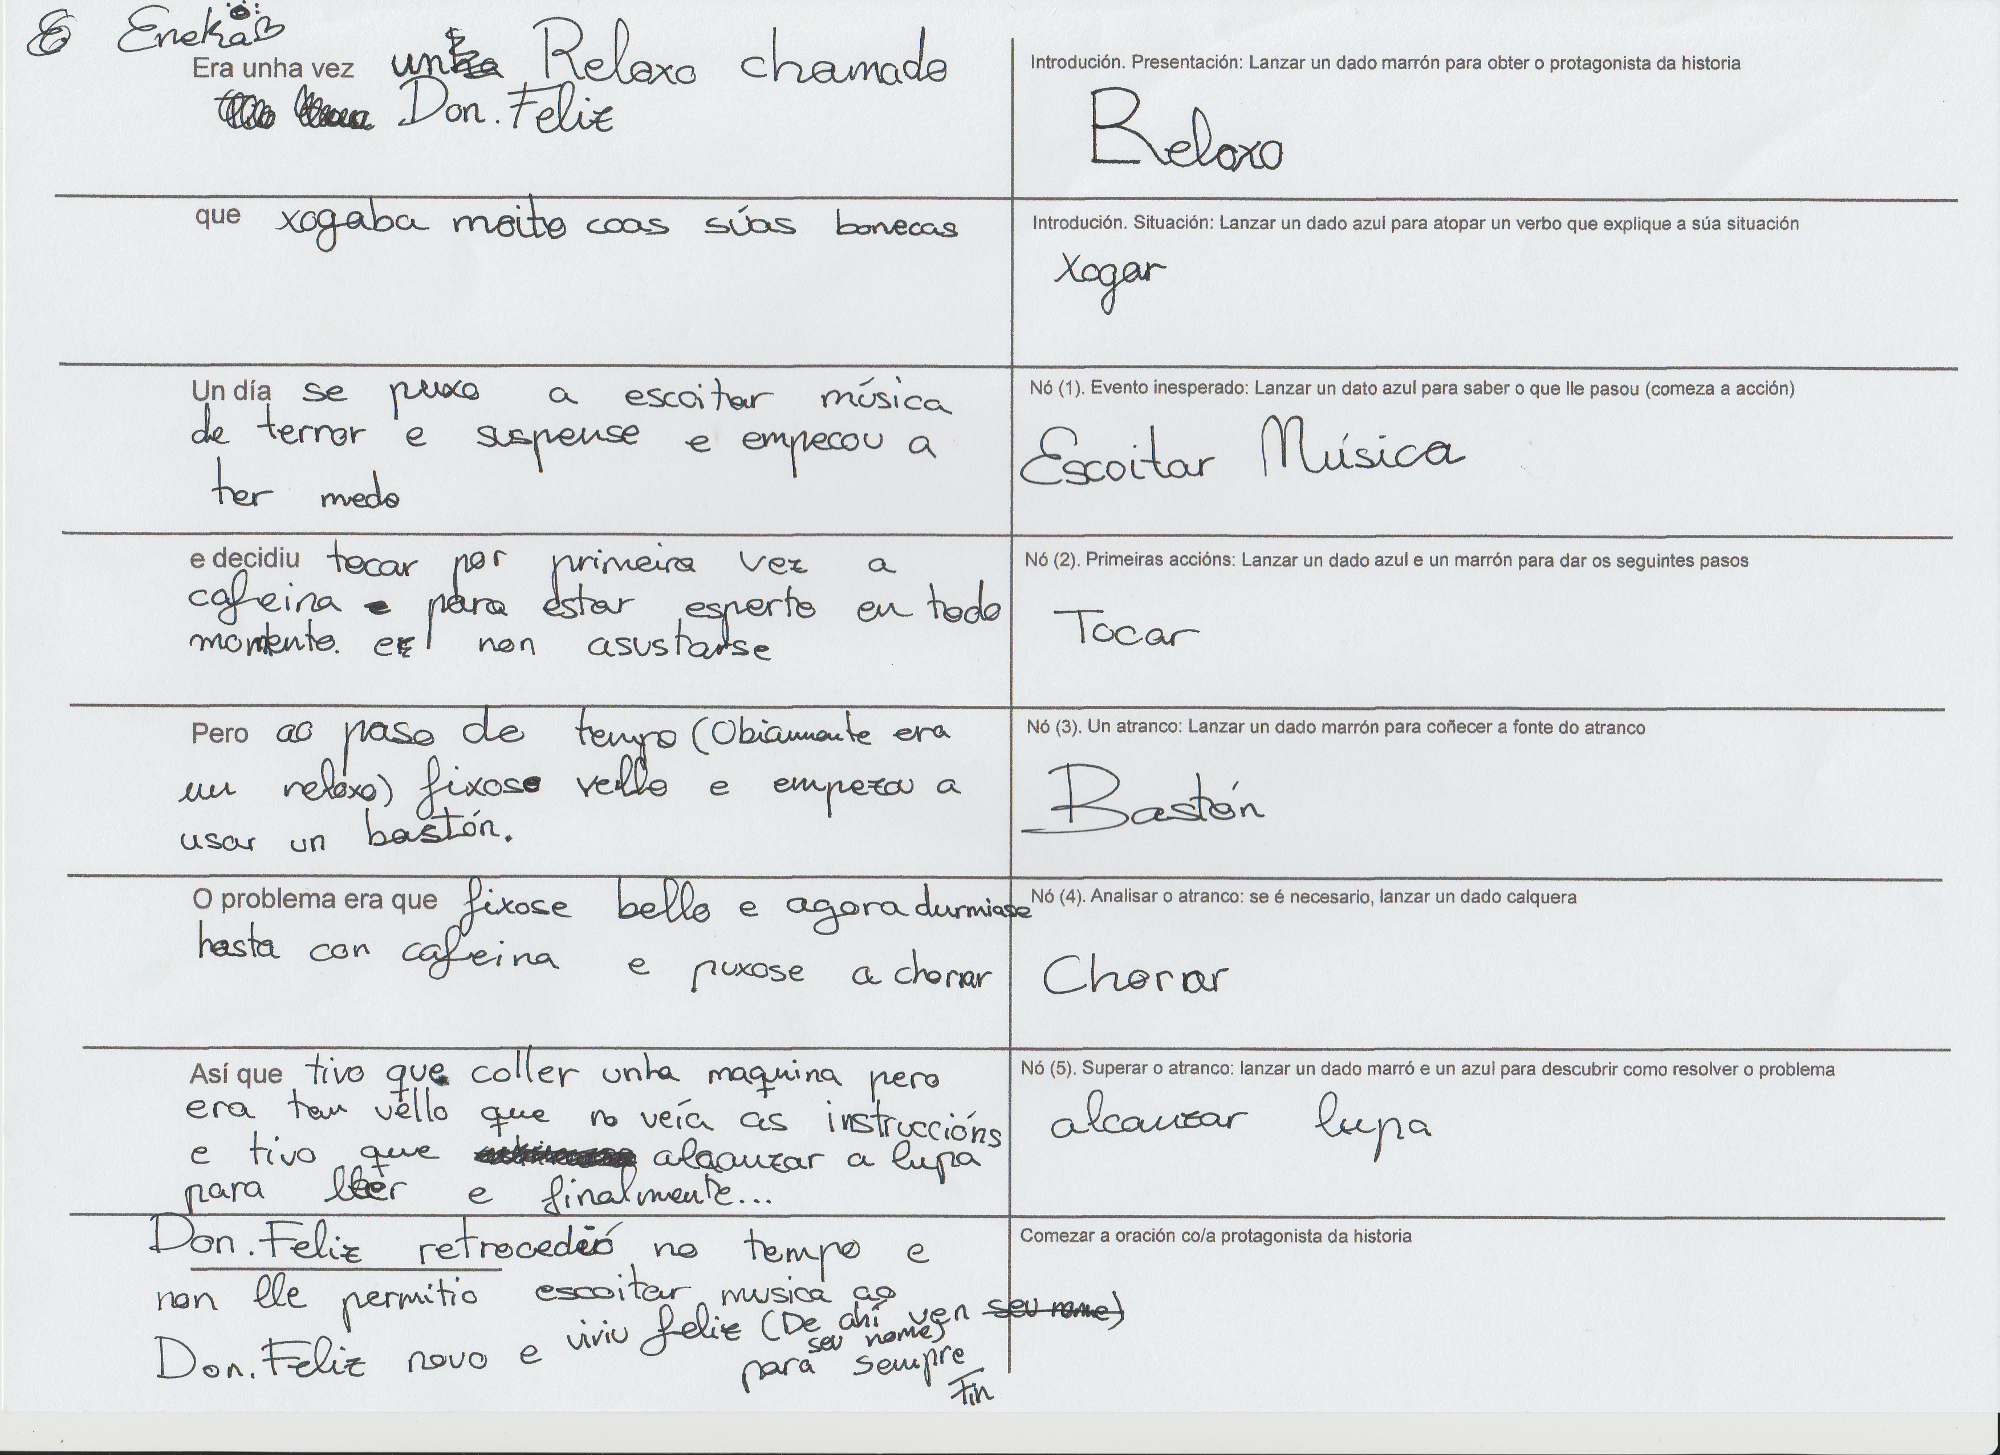 6 Eneka
Era unha vez un Reloxo chamado
Don. Feliz
Introdución. Presentación: Lanzar un dado marrón para obter o protagonista da historia
Reloxo
que xogaba moito coas súas bonecas
Introdución. Situación: Lanzar un dado azul para atopar un verbo que explique a súa situación
Xogar
Un día se puxo a escoitar música
de terror e suspense e empecou a
ter medo
Nó (1). Evento inesperado: Lanzar un dato azul para saber o que lle pasou (comeza a acción)
Escoitar Música
e decidiu tocar por primeira vez a
cafeina e para estar esperto en todo
momento. e non asustarse
Nó (2). Primeiras accións: Lanzar un dado azul e un marrón para dar os seguintes pasos
Tocar
Pero ao paso de tempo (Obiamente era
un reloxo) fixose vello e empezou a
usar un bastón.
Nó (3). Un atranco: Lanzar un dado marrón para coñecer a fonte do atranco
Bastón
O problema era que fixose bello e agora durmiase
hasta con cafeina e puxose a chorar
Nó (4). Analisar o atranco: se é necesario, lanzar un dado calquera
Chorar
Así que tivo que coller unha maquina pero
era tan vello que no veía as instruccións
e tivo que alcanzar a lupa
para ller e finalmente...
Nó (5). Superar o atranco: lanzar un dado marró e un azul para descubrir como resolver o problema
alcanzar lupa
Don. Feliz retrocedeó no tempo e
non lle permitio escoitar musica ao
Don. Feliz novo e viviu feliz (De ahí ven seu nome)
seu nome)
para sempre
Fin
Comezar a oración co/a protagonista da historia